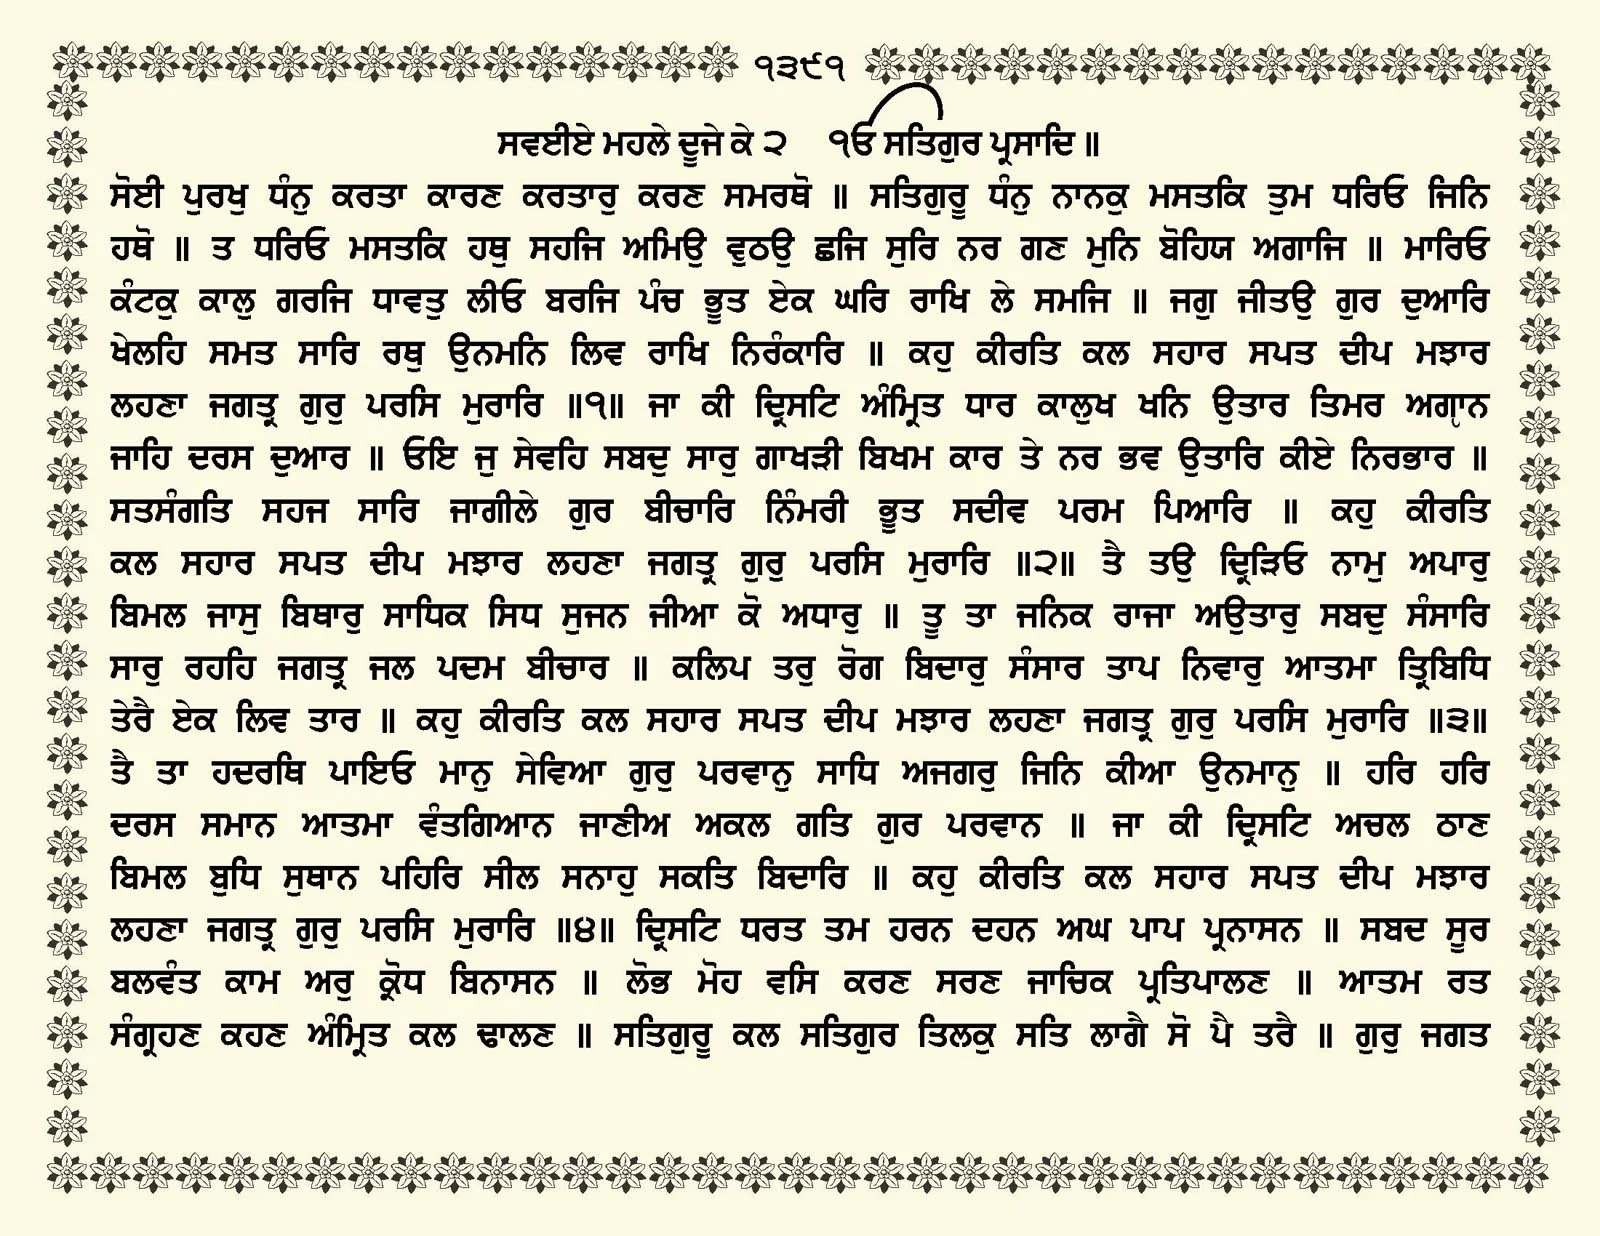 ੧੩੯੧
ਸਵਈਏ ਮਹਲੇ ਦੂਜੇ ਕੇ ੨ ੴ ਸਤਿਗੁਰ ਪ੍ਰਸਾਦਿ ॥
ਸੋਈ ਪੁਰਖੁ ਧੰਨੁ ਕਰਤਾ ਕਾਰਣ ਕਰਤਾਰੁ ਕਰਣ ਸਮਰਥੋ ॥ ਸਤਿਗੁਰੂ ਧੰਨੁ ਨਾਨਕੁ ਮਸਤਕਿ ਤੁਮ ਧਰਿਓ ਜਿਨਿ
ਹਥੋ ॥ ਤ ਧਰਿਓ ਮਸਤਕਿ ਹਥੁ ਸਹਜਿ ਅਮਿਉ ਵੁਠਉ ਛਜਿ ਸੁਰਿ ਨਰ ਗਣ ਮੁਨਿ ਬੋਹਿਯ ਅਗਾਜਿ ॥ ਮਾਰਿਓ
ਕੰਟਕੁ ਕਾਲੁ ਗਰਜਿ ਧਾਵਤੁ ਲੀਓ ਬਰਜਿ ਪੰਚ ਭੂਤ ਏਕ ਘਰਿ ਰਾਖਿ ਲੇ ਸਮਜਿ ॥ ਜਗੁ ਜੀਤਉ ਗੁਰ ਦੁਆਰਿ
ਖੇਲਹਿ ਸਮਤ ਸਾਰਿ ਰਥੁ ਉਨਮਨਿ ਲਿਵ ਰਾਖਿ ਨਿਰੰਕਾਰਿ ॥ ਕਹੁ ਕੀਰਤਿ ਕਲ ਸਹਾਰ ਸਪਤ ਦੀਪ ਮਝਾਰ
ਲਹਣਾ ਜਗਤ੍ਰ ਗੁਰੁ ਪਰਸਿ ਮੁਰਾਰਿ ॥੧॥ ਜਾ ਕੀ ਦ੍ਰਿਸਟਿ ਅੰਮ੍ਰਿਤ ਧਾਰ ਕਾਲੁਖ ਖਨਿ ਉਤਾਰ ਤਿਮਰ ਅਗੵਾਨ
ਜਾਹਿ ਦਰਸ ਦੁਆਰ ॥ ਓਇ ਜੁ ਸੇਵਹਿ ਸਬਦੁ ਸਾਰੁ ਗਾਖੜੀ ਬਿਖਮ ਕਾਰ ਤੇ ਨਰ ਭਵ ਉਤਾਰਿ ਕੀਏ ਨਿਰਭਾਰ ॥
ਸਤਸੰਗਤਿ ਸਹਜ ਸਾਰਿ ਜਾਗੀਲੇ ਗੁਰ ਬੀਚਾਰਿ ਨਿੰਮਰੀ ਭੂਤ ਸਦੀਵ ਪਰਮ ਪਿਆਰਿ ॥ ਕਹੁ ਕੀਰਤਿ
ਕਲ ਸਹਾਰ ਸਪਤ ਦੀਪ ਮਝਾਰ ਲਹਣਾ ਜਗਤ੍ਰ ਗੁਰੁ ਪਰਸਿ ਮੁਰਾਰਿ ॥੨॥ ਤੈ ਤਉ ਦ੍ਰਿੜਿਓ ਨਾਮੁ ਅਪਾਰੁ
ਬਿਮਲ ਜਾਸੁ ਬਿਥਾਰੁ ਸਾਧਿਕ ਸਿਧ ਸੁਜਨ ਜੀਆ ਕੋ ਅਧਾਰੁ ॥ ਤੂ ਤਾ ਜਨਿਕ ਰਾਜਾ ਅਉਤਾਰੁ ਸਬਦੁ ਸੰਸਾਰਿ
ਸਾਰੁ ਰਹਹਿ ਜਗਤ੍ਰ ਜਲ ਪਦਮ ਬੀਚਾਰ ॥ ਕਲਿਪ ਤਰੁ ਰੋਗ ਬਿਦਾਰੁ ਸੰਸਾਰ ਤਾਪ ਨਿਵਾਰੁ ਆਤਮਾ ਤ੍ਰਿਬਿਧਿ
ਤੇਰੈ ਏਕ ਲਿਵ ਤਾਰ ॥ ਕਹੁ ਕੀਰਤਿ ਕਲ ਸਹਾਰ ਸਪਤ ਦੀਪ ਮਝਾਰ ਲਹਣਾ ਜਗਤ੍ਰ ਗੁਰੁ ਪਰਸਿ ਮੁਰਾਰਿ ॥੩॥
ਤੈ ਤਾ ਹਦਰਥਿ ਪਾਇਓ ਮਾਨੁ ਸੇਵਿਆ ਗੁਰੁ ਪਰਵਾਨੁ ਸਾਧਿ ਅਜਗਰੁ ਜਿਨਿ ਕੀਆ ਉਨਮਾਨੁ ॥ ਹਰਿ ਹਰਿ
ਦਰਸ ਸਮਾਨ ਆਤਮਾ ਵੰਤਗਿਆਨ ਜਾਣੀਅ ਅਕਲ ਗਤਿ ਗੁਰ ਪਰਵਾਨ ॥ ਜਾ ਕੀ ਦ੍ਰਿਸਟਿ ਅਚਲ ਠਾਣ
ਬਿਮਲ ਬੁਧਿ ਸੁਥਾਨ ਪਹਿਰਿ ਸੀਲ ਸਨਾਹੁ ਸਕਤਿ ਬਿਦਾਰਿ ॥ ਕਹੁ ਕੀਰਤਿ ਕਲ ਸਹਾਰ ਸਪਤ ਦੀਪ ਮਝਾਰ
ਲਹਣਾ ਜਗਤ੍ਰ ਗੁਰੁ ਪਰਸਿ ਮੁਰਾਰਿ ॥੪॥ ਦ੍ਰਿਸਟਿ ਧਰਤ ਤਮ ਹਰਨ ਦਹਨ ਅਘ ਪਾਪ ਪ੍ਰਨਾਸਨ ॥ ਸਬਦ ਸੂਰ
ਬਲਵੰਤ ਕਾਮ ਅਰੁ ਕ੍ਰੋਧ ਬਿਨਾਸਨ ॥ ਲੋਭ ਮੋਹ ਵਸਿ ਕਰਣ ਸਰਣ ਜਾਚਿਕ ਪ੍ਰਤਿਪਾਲਣ ॥ ਆਤਮ ਰਤ
ਸੰਗ੍ਰਹਣ ਕਹਣ ਅੰਮ੍ਰਿਤ ਕਲ ਢਾਲਣ ॥ ਸਤਿਗੁਰੂ ਕਲ ਸਤਿਗੁਰ ਤਿਲਕੁ ਸਤਿ ਲਾਗੈ ਸੋ ਪੈ ਤਰੈ ॥ ਗੁਰੁ ਜਗਤ